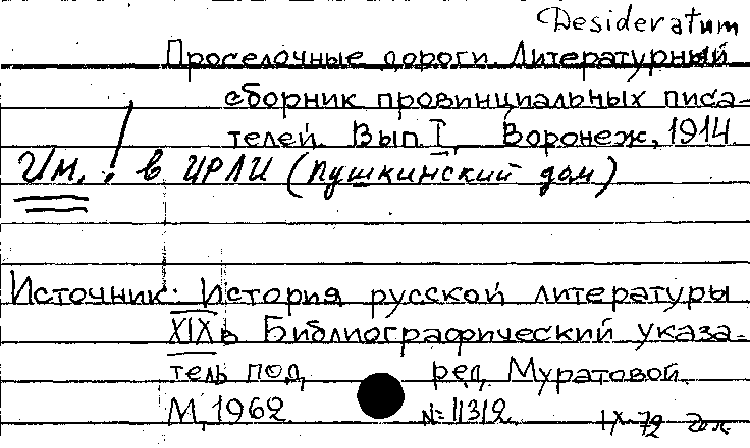 Desideratum
Проселочные дороги. Литературный
сборник провинциальных писа-
телей. Вып. I, Воронеж, 1914.
Им.! в ИРЛИ (Пушкинский дом)
Источник: История русской литературы
XIX в Библиографический указа-
тель под, ред, Муратовой.
М, 1962. №11312.